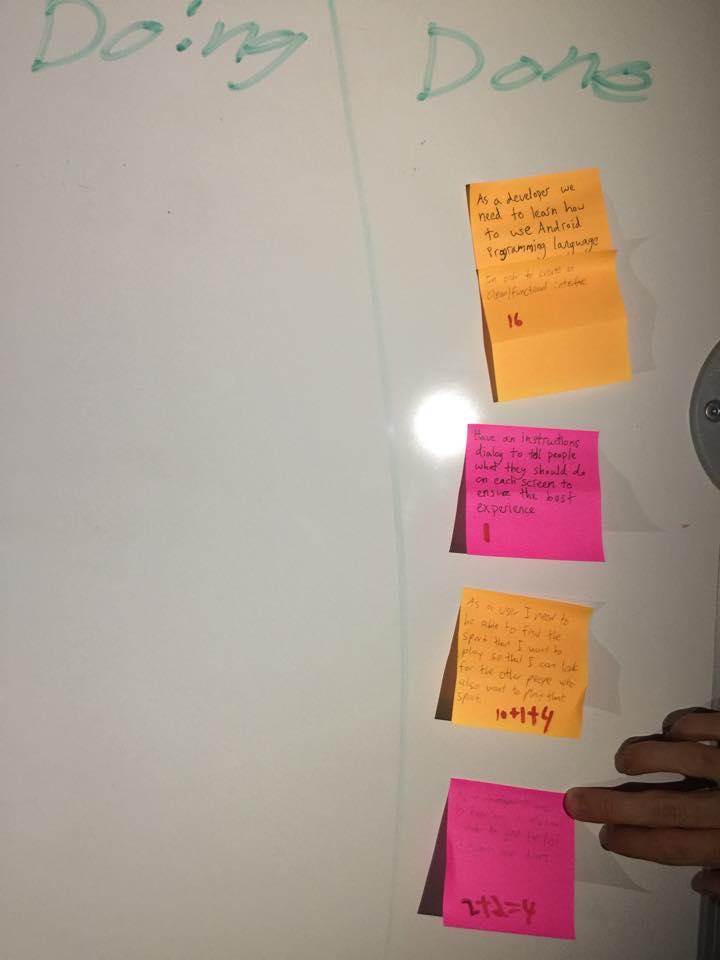 Doing
Done
As a developer we
need to learn how
to use Android
Programming language
In order to create a
clean/functional interface
16
Have an instructions
dialog to tell people
what they should do
on each screen to
ensure the best
experience
1
As a user I need to
be able to find the
sport that I want to
play so that I can look
for the other people who
also want to play that
sport.
10+1+4
2+2=4